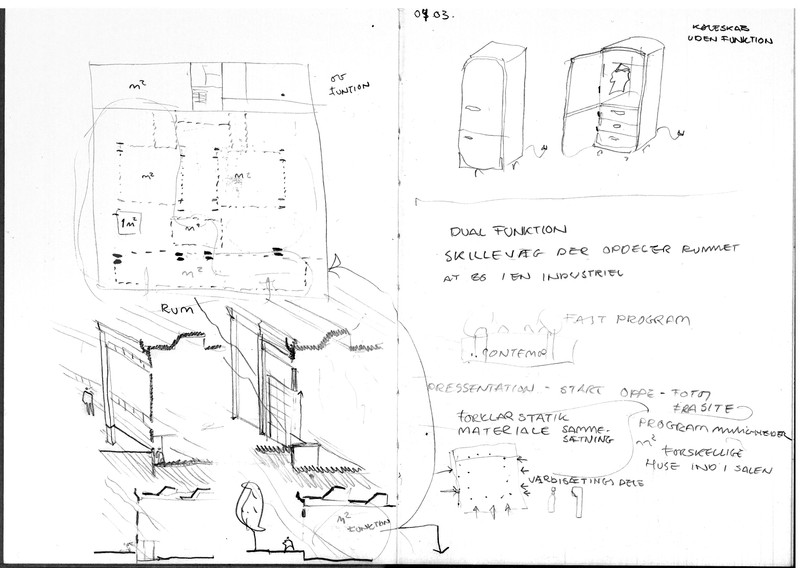 m²
OG
FUNTION
m²
m²
1m²
m²
m²
RUM
m²
FUNKTION
07 03.
KØLESKAB
UDEN FUNKTION
DUAL FUNKTION
SKILLEVÆG DER OPDELER RUMMET
AT
I EN INDUSTRIEL
FAST PROGRAM
CONTEMP
PRESSENTATION - START OPPE - FOTO
FRA SITE
FORKLAR STATIK
MATERIALE SAMME-
SÆTNING
PROGRAM MULIGHEDER
m²
FORSKELLIGE
HUSE IND I SALEN